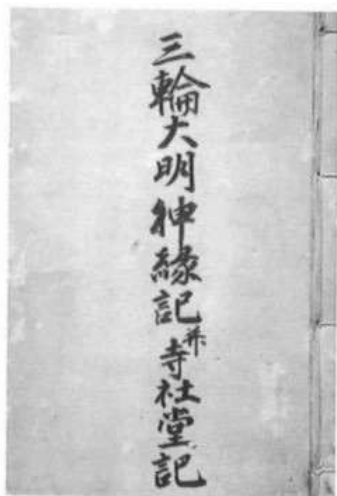 三輪大明神縁記并寺社堂記